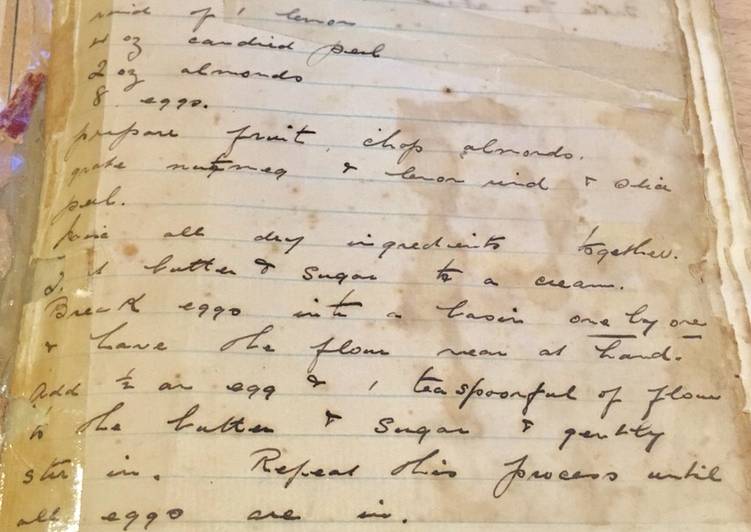 rind of 1 lemon
4 oz candied peel
2 oz almonds
8 eggs.
prepare fruit, chop almonds.
grate nutmeg & lemon rind & slice
peel.
all dry ingredients together.
butter & sugar to a cream.
Break eggs into a basin one by one
& have the flour near at hand.
Add ½ an egg & 1 teaspoonful of flour
to the butter & sugar & gently
stir in. Repeat this process until
all eggs are in.